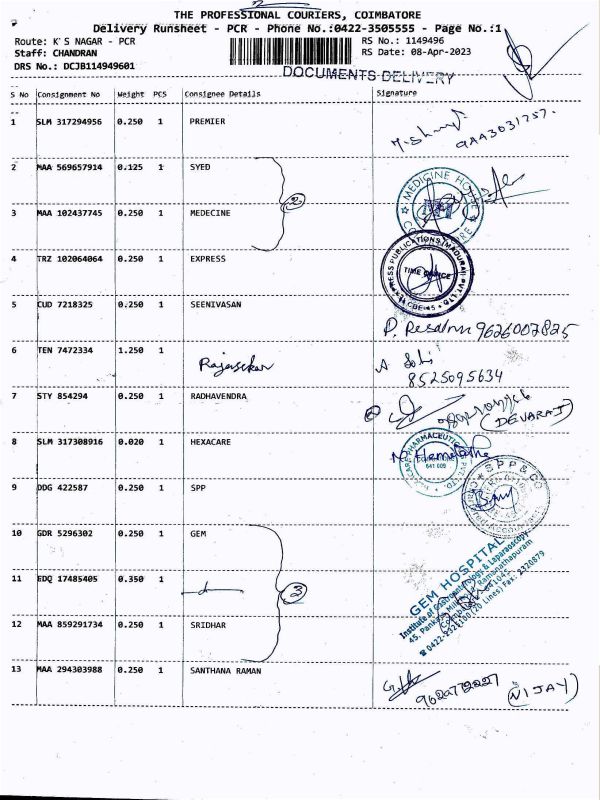 2
THE PROFESSIONAL COURIERS, COIMBATORE
Delivery Runsheet - PCR - Phone No.:0422-3505555 - Page No.:1
Route: K S NAGAR - PCR RS No.: 1149496
Staff: CHANDRAN RS Date: 08-Apr-2023
DRS No.: DCJB114949601
DOCUMENTS DELIVERY
S No Consignment No Weight PCS Consignee Details Signature
1 SLM 317294956 0.250 1 PREMIER
2 MAA 569657914 0.125 1 SYED
2
MEDICINE HOUSE
3 MAA 102437745 0.250 1 MEDECINE
4 TRZ 102064064 0.250 1 EXPRESS
EXPRESS PUBLICATIONS (MADURAI) PVT LTD
TIME OFFICE
5 CUD 7218325 0.250 1 SEENIVASAN
9626002825
6 TEN 7472334 1.250 1 Rajasekar
8525095634
7 STY 854294 0.250 1 RADHAVENDRA
(DEVARAJ)
8 SLM 317308916 0.020 1 HEXACARE
641 009
9 DDG 422587 0.250 1 SPP
SPP & CO
10 GDR 5296302 0.250 1 GEM
GEM HOSPITAL
Institute of Gastroenterology & Laparoscopy
Ramanathapuram
11 EDQ 17485405 0.350 1
3
12 MAA 859291734 0.250 1 SRIDHAR
13 MAA 294303988 0.250 1 SANTHANA RAMAN
(VIJAY)